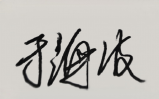 于海波